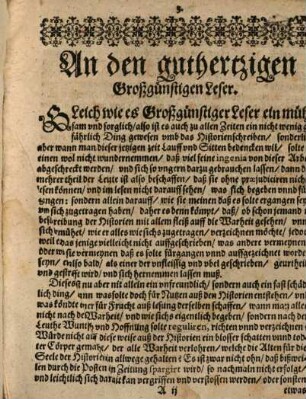 3.
An den guthertzigen
Großgünstigen Leser.
GLeich wie es Großgünstiger Leser ein müh
sam vnd sorglich/also ist es auch zu allen Zeiten ein nicht wenig
fährlich Ding gewesen vnd das Historienschreiben / sondern
aber wann man dieser jetzigen zeit Lauff vnd Sitten bedencken wil / solte
einen wol nicht wundernemmen / daß viel feine ingenia von dieser Arb
abgeschreckt werden / vnd sich so vngern darzu gebrauchen lassen / dann d
mehrer theil der Leut ist also beschaffen / daß sie ohne præjudicieren nich
lesen können / vnd im lesen nicht darauff sehen / was sich begeben vnnd
tragen: sondern allein darauff / wie sie meinen daß es solte ergangen seyn
vnd sich zugetragen haben / daher es denn kömpt / daß ob schon jemand
beschreibung der Historien mit allem fleiß auff die Warheit gesehen / vnn
sich bemühet / wie es alles wie sichs zugetragen / verzeichnen möchte / jedoch
weil etwas jenige vielleicht nicht auffgeschrieben / was andere vermeynen
oder wie sie vermeynen daß es solte fürgangen vnnd auffgezeichnet worden
seyn / eweso bald / als einer der vnfleissig vnd vbel geschrieben / geurthei
vnd gestrafft wird / vnd sich hernemmen lassen muß.
Dieses nu aber nit allein ein vnfreundlich / sondern auch ein fast schäd
lich ding / dann was solte doch für Nutzen auß den Historien entstehen / vnd
was köndte wir für Frucht auß lesung derselben schaffen / wann man alles
nicht nach der Warheit / vnd wie sichs eigentlich begeben / sondern nach der
Leuthe Wuntsch vnd Hoffnung solte regulieren, richten vnnd verzeichnen
Würde nicht auß diese weise auß der Historien ein blosser schatten vnnd to
ter Cörper gemacht / der alle Warheit verlohren / welche die Alten für
Seele der Historien allwege gehalten? Es ist zwar nicht ohn / daß bißwei
len durch die Posten in Zeitung spargirt wird / so nachmaln nicht erfolgt /
vnd leichtlich sich daran kan vergriffen vnd verstossen werden / oder sonsten
A ij
etwas